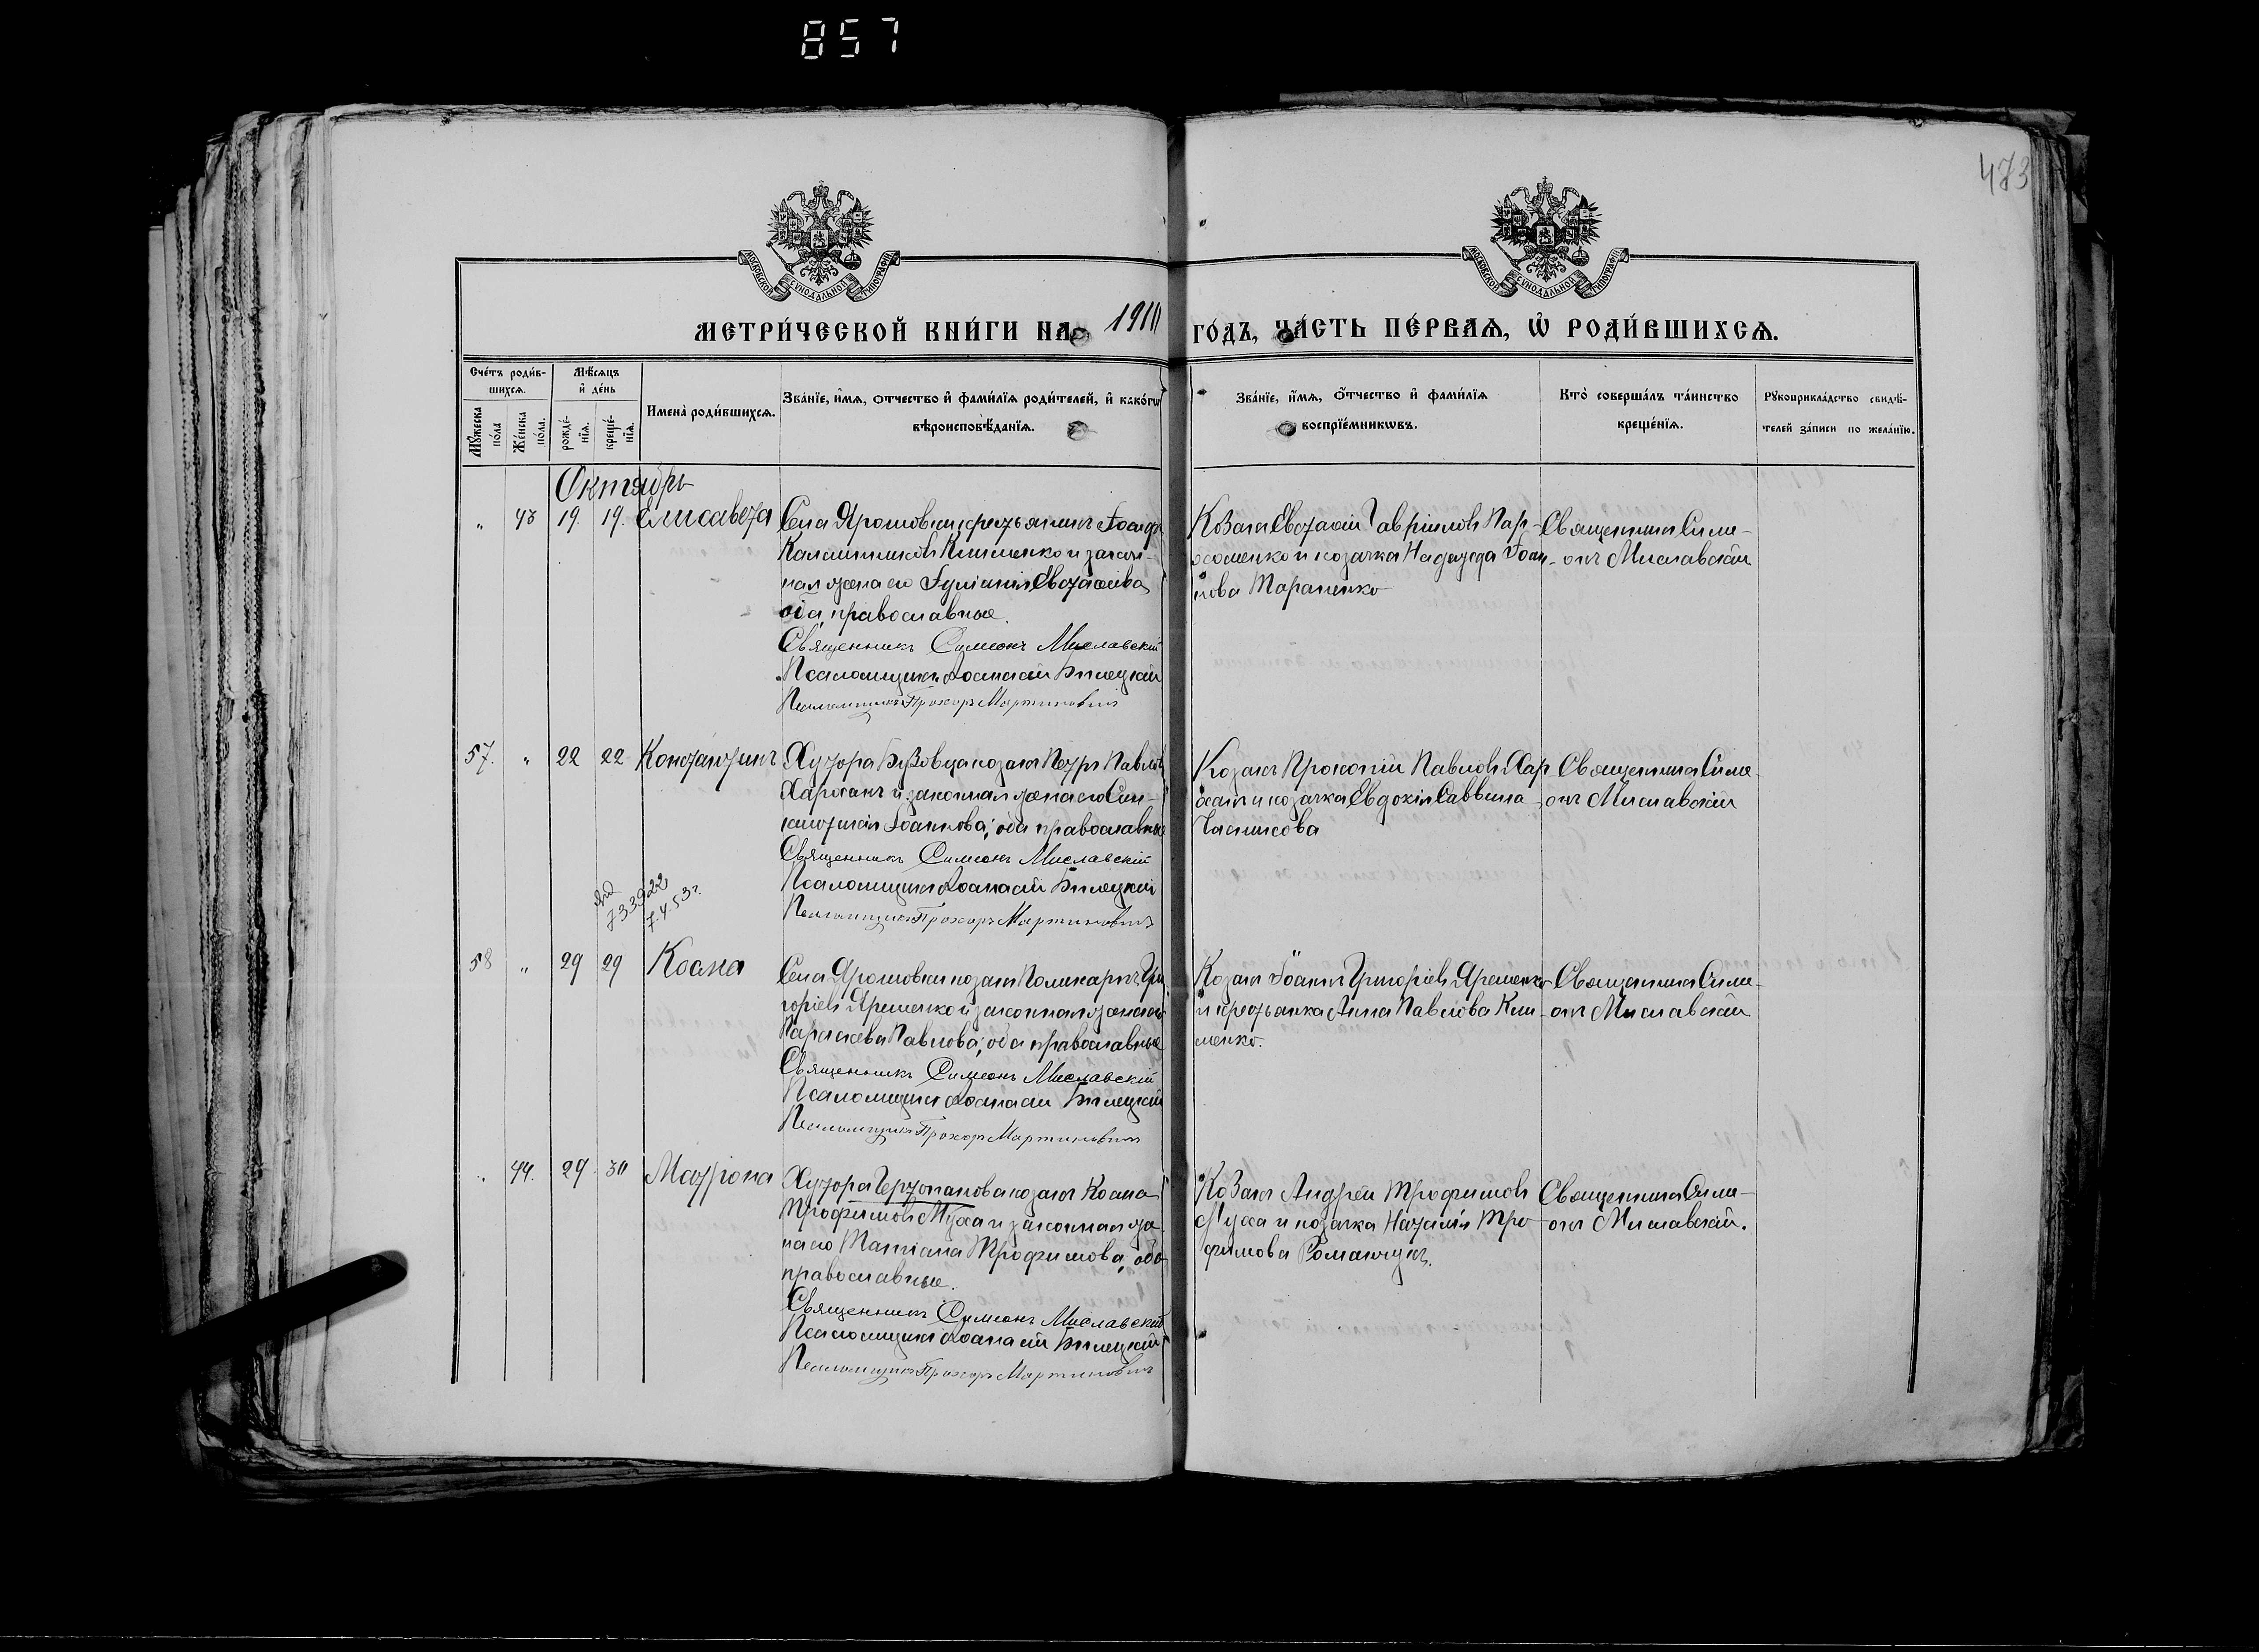 857
473
МОСКОВСКОЙ СѴНОДАЛЬНОЙ ТИПОГРАФІИ
МОСКОВСКОЙ СѴНОДАЛЬНОЙ ТИПОГРАФІИ
МЕТРИ́ЧЕСКОЙ КНИ́ГИ НА 1910 ГО́ДЪ, ЧА́СТЬ ПЕ́РВАѦ, Ѡ҆ РОДИ́ВШИХСѦ.
Сче́тъ роди́в-
шихсѧ.
Мꙋ́жеска по́ла
Же́нска по́ла.
Мѣ́сѧцъ и҆ де́нь
рожде́-
нїѧ.
креще́-
нїѧ.
Имена̀ роди́вшихсѧ.
Зва́нїе, и҆́мѧ, ѻ҆́тчество и҆ фами́лїѧ роди́телей, и҆ како́гѡ
вѣроисповѣ́данїѧ.
Зва́нїе, и҆́мѧ, ѻ҆́тчество и҆ фами́лїѧ
воспрїе́мникѡвъ.
Кто̀ соверша́лъ та́инство
креще́нїѧ.
Рꙋкоприкла́дство свидѣ́-
телей за́писи по жела́нїю.
Октябрь
" 43 19. 19. Елисавета
Села Ярошовки крестьянинъ Іоаннъ
Калинниковъ Клименко и закон-
ная жена его Іуліанія Евстафіева
оба православные.
Священникъ Симеонъ Миславскій
Псаломщикъ Афанасій Билецкій
Псаломщикъ Прохоръ Мартиновичъ
Козакъ Евстафій Гавріиловъ Пар-
хоменко и козачка Надежда Іоан-
нова Тараненко
Священникъ Симе-
онъ Миславскій
57. " 22 22 Константинъ
Хутора Бубовца козакъ Петръ Павловъ
Харханъ и законная жена его Син-
клитикія Іоаннова; оба православные
Священникъ Симеонъ Миславскій
Псаломщикъ Афанасій Билецкій
Псаломщикъ Прохоръ Мартиновичъ
733922
7.4.53г.
Козакъ Прокопій Павловъ Хар-
ханъ и козачка Евдокія Саввина
Священникъ Симе-
онъ Миславскій
58 " 29 29 Косма
Села Ярошовки козакъ Поликарпъ Гри-
горіевъ Яременко и законная жена его
Параскева Павлова; оба православные
Священникъ Симеонъ Миславскій
Псаломщикъ Афанасій Билецкій
Псаломщикъ Прохоръ Мартиновичъ
Козакъ Іоаннъ Григоріевъ Яременко
и крестьянка Анна Павлова Кли-
менко.
Священникъ Симе-
онъ Миславскій
" 44. 29 30 Матрона
Хутора козакъ Косма
Трофимовъ Муха и законная же-
на его Татіана Трофимова, оба
православные.
Священникъ Симеонъ Миславскій
Псаломщикъ Афанасій Билецкій
Псаломщикъ Прохоръ Мартиновичъ
Козакъ Андрей Трофимовъ
Муха и козачка Наталія Тро-
фимова Романчукъ.
Священникъ Симе-
онъ Миславскій.